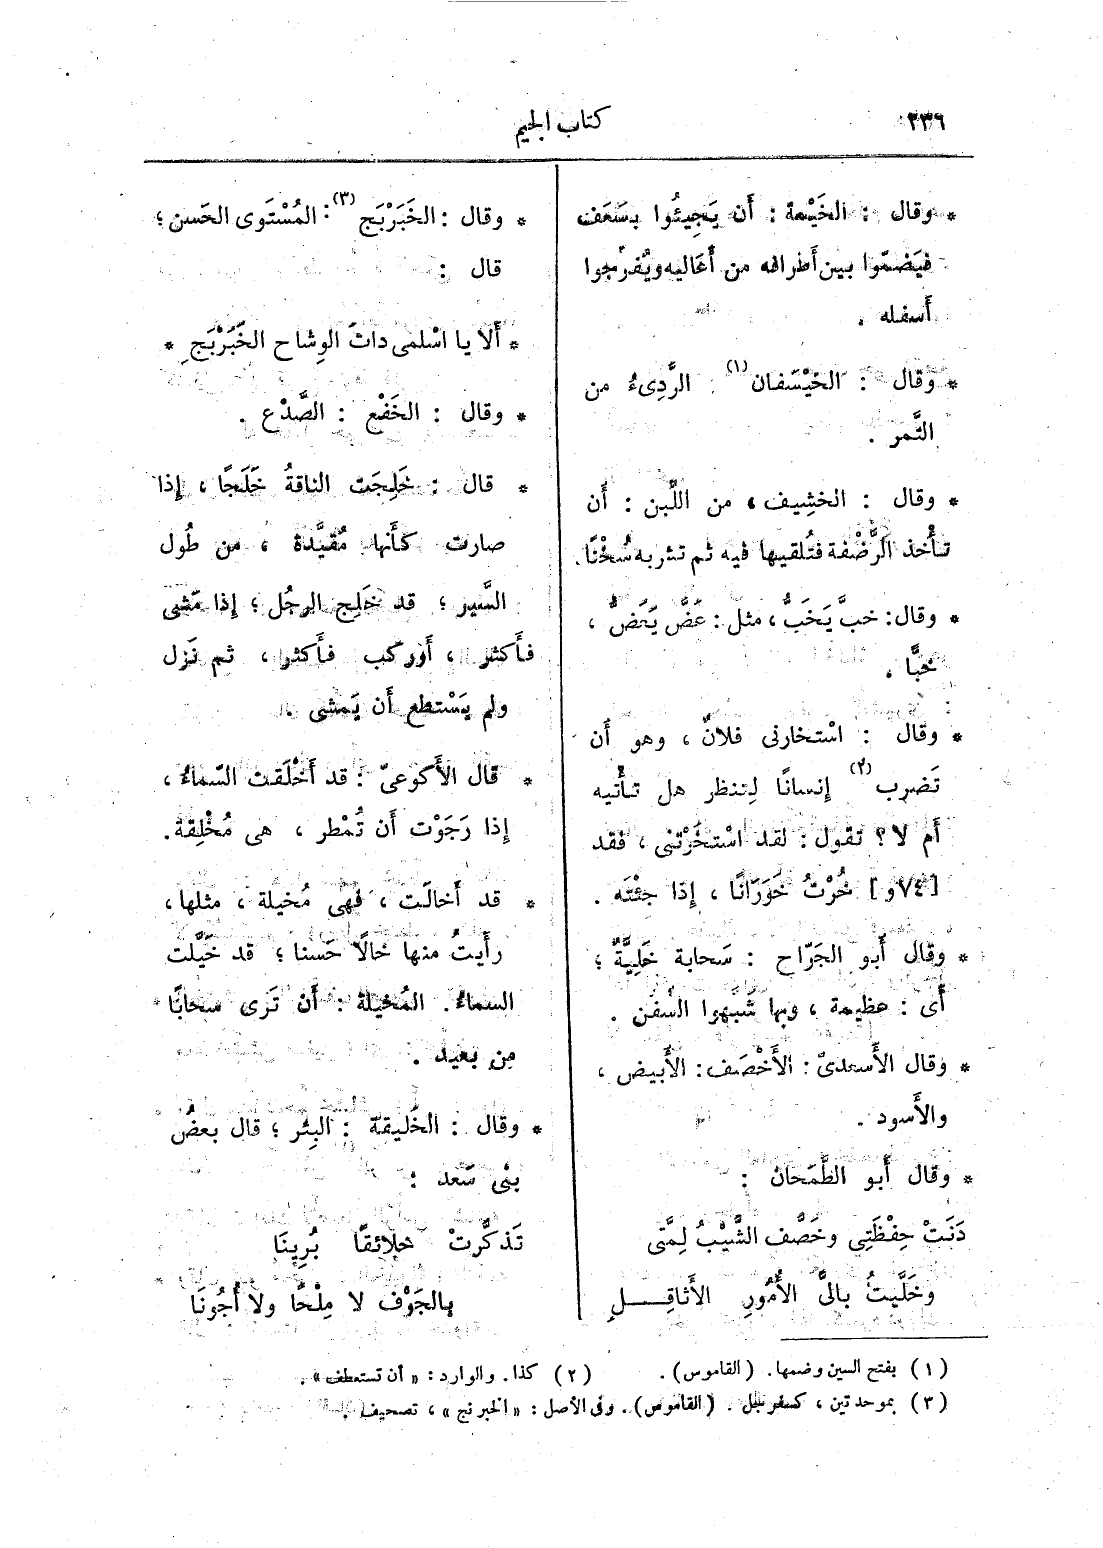 ٢٣٦
كتاب الجيم
* وقال : الخَيْمة : أن يَجِيئُوا بسَعَف
فيَضمّوا بين أطرافه من أَعَاليه ويُفرّجوا
أسفله .
* وقال : الخَيْسَفان (١) : الرَّدِىءُ من
التَّمر .
* وقال : الخشِيف ، من اللَّبن : أَن
تأْخذ الرَّضْفة فتُلقيها فيه ثم تشربه سُخْنًا .
* وقال : خبَّ يَخَبُّ ، مثل : عَضَّ يَعَضُّ ،
خبًّا .
* وقال : اسْتخارنى فلانٌ ، وهو أَن
تَضرب (٢) إنسانًا لِتنظر هل تأْتيه
أَم لا ؟ تقول : لقد اسْتخَرْتنى ، فقد
[٧٤و] خُرْتُ خَوَرَانًا ، إذا جِئْتَه .
* وقال أَبو الجَرّاح : سَحابة خَلِيَّةٌ ؛
أَى : عظيمة ، وبها شَبّهوا السفن .
* وقال الأَسعدىّ : الأَخْصَف : الأَبيض ،
والأَسود .
* وقال أَبو الطَّمَحان :
دَنَتْ حِفْظَتِي وخَصَّف الشَّيْبُ لِمَّتى
وخَلَّيتُ بالىَّ الأُمُورِ الأَثاقِــــلِ
* وقال : الخَبَرْبَج (٣) : المُسْتَوى الحَسن ؛
قال :
* أَلا يا اسْلمى داتَ الوِشاح الخَبَرْبَجِ *
* وقال : الخَفْع : الصَّدْع .
* قال : خَلِجَت الناقةُ خَلَجًا ، إذا
صارت كأَنها مُقيَّدة ، من طُول
السَّير ؛ قد خَلِج الرجُل ؛ إذا مَشى
فأَكثر ، أَو ركب فأَكثر ، ثم نَزل
ولم يَسْتطع أَن يَمشى .
* قال الأَكوعىّ : قد أَخْلَقت السّماءُ ،
إذا رَجَوْت أَن تُمْطر ، هى مُخْلِقة .
* قد أَخالَت ، فهى مُخيلة ، مثلها ،
رأَيتُ منها خالًا حَسنا ؛ قد خَيَّلت
السماءُ . المُخيلة : أَن تَرى سحابًا
من بعيد .
* وقال : الخَليقة : البِئر ؛ قال بعضُ
بنى سَعد :
تَذكَّرتْ خلائقًا بُرِينَا
بالجَوْف لا مِلْحًا ولا أُجُونَا
(١) بفتح السين وضمها . (القاموس) . (٢) كذا . والوارد : « أن تستعطف » .
(٣) بموحدتين ، كسفرجل . (القاموس) . وفى الأصل : « الخبرنج » ، تصحيف .